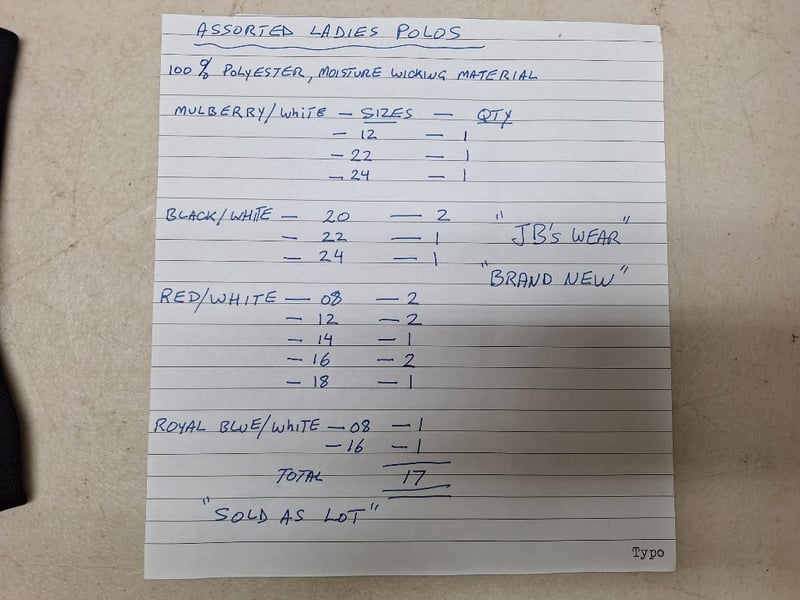 ASSORTED LADIES POLOS
100% POLYESTER, MOISTURE WICKING MATERIAL
MULBERRY/WHITE - SIZES - QTY
- 12 - 1
- 22 - 1
- 24 - 1
BLACK/WHITE - 20 - 2
- 22 - 1
- 24 - 1
"JB's WEAR"
"BRAND NEW"
RED/WHITE - 08 - 2
- 12 - 2
- 14 - 1
- 16 - 2
- 18 - 1
ROYAL BLUE/WHITE - 08 - 1
- 16 - 1
TOTAL 17
"SOLD AS LOT"
Typo